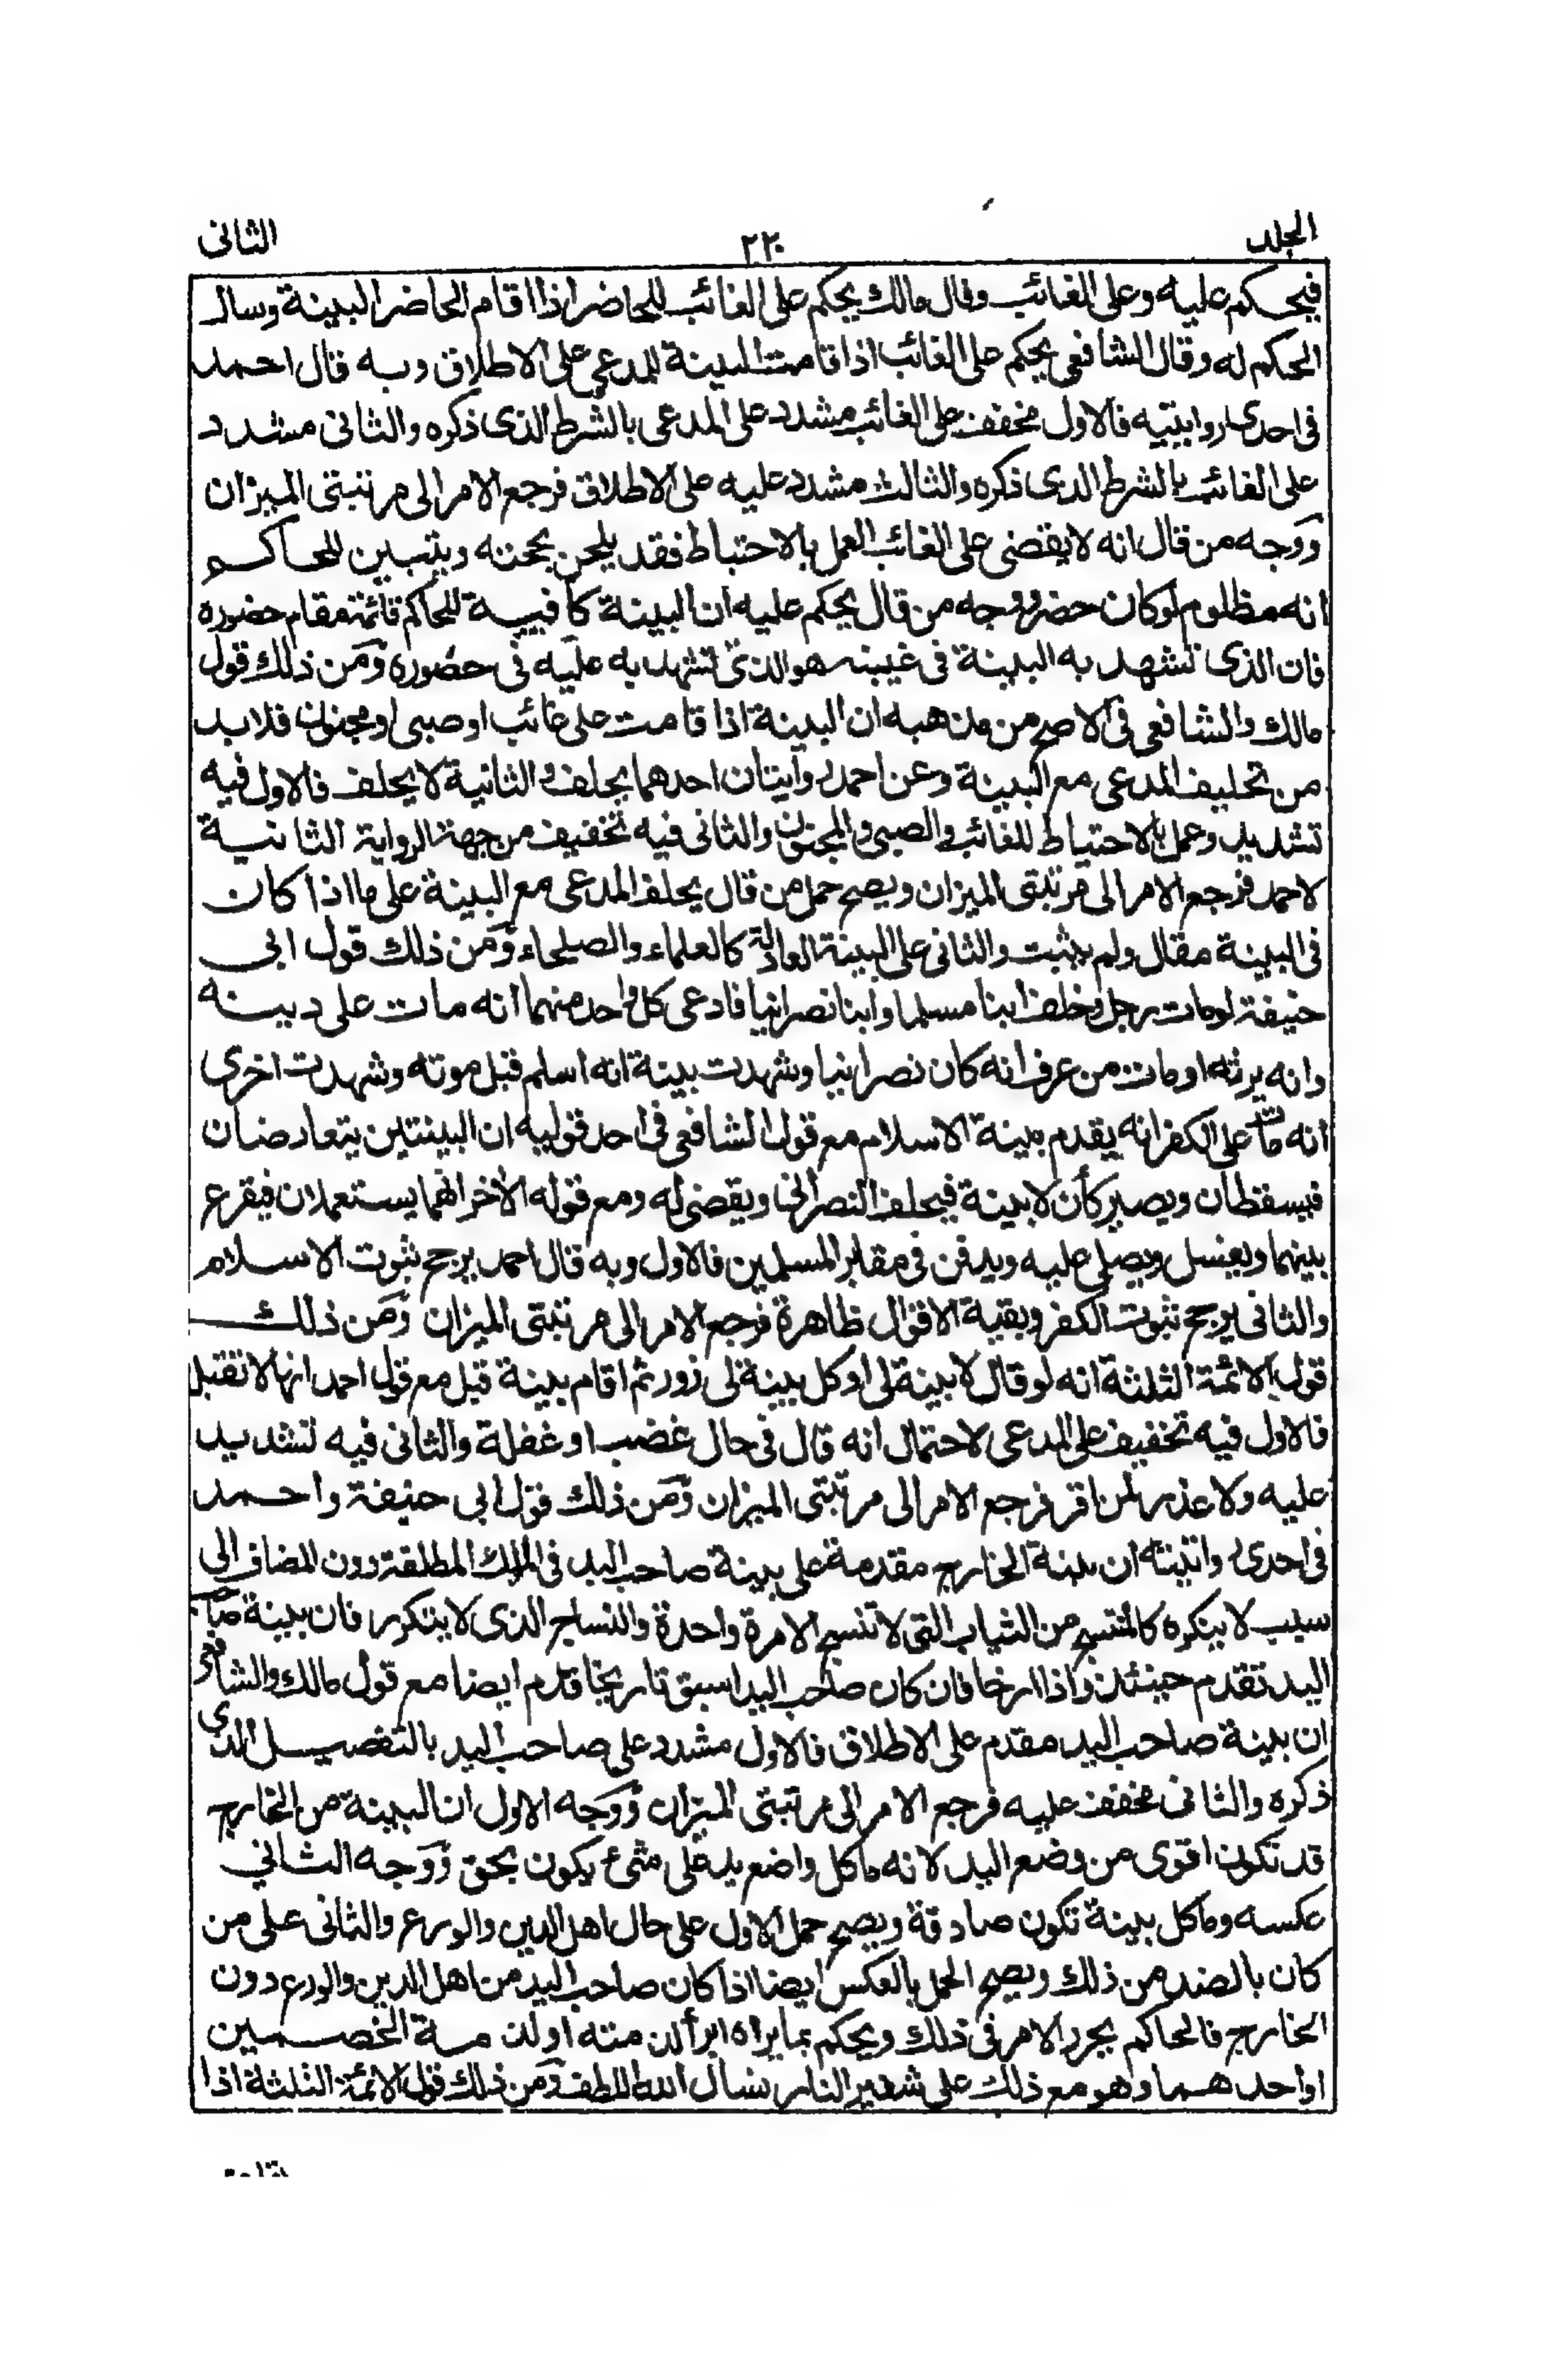 الجلد ٢٢٠ الثانى
فيحكم عليه وعلى الغائب وقال مالك يحكم على الغائب للحاضر اذا اقام الحاضر البينة وسال
الحكم له وقال الشافعى يحكم على الغائب اذا قامت البينة للمدعى على الاطلاق وبه قال احمد
فى احدى روايتيه فالاول مخفف على الغائب مشدد على المدعى بالشرط الذى ذكره والثانى مشدد
على الغائب بالشرط الذى ذكره والثالث مشدد عليه على الاطلاق فرجع الامر الى مرتبتى الميزان
ووجه من قال انه لا يقضى على الغائب العمل بالاحتياط فقد يلحن بحجته ويتبين للحاكم
انه مظلوم لو كان حضر ووجه من قال يحكم عليه ان البينة كافيية للحاكم قائمة مقام حضوره
فان الذى تشهد به البينة فى غيبته هو الذى تشهد به عليه فى حضوره ومن ذلك قول
مالك والشافعى فى الاصح من مذهبه ان البينة اذا قامت على غائب او صبى او مجنون فلا بد
من تحليف المدعى مع البينة وعن احمد روايتان احدهما يحلف والثانية لا يحلف فالاول فيه
تشديد وعمل بالاحتياط للغائب والصبى والمجنون والثانى فيه تخفيف من جهة الرواية الثانية
لاحمد فرجع الامر الى مرتبتى الميزان ويصح حمل من قال يحلف المدعى مع البينة على ما اذا كان
فى البينة مقال ولم يثبت والثانى على البينة العادلة كالعلماء والصلحاء ومن ذلك قول ابى
حنيفة لو مات رجل وخلف ابنا مسلما وابنا نصرانيا فادعى كل واحد منهما انه مات على دينه
وانه يرثه او مات من عرف انه كان نصرانيا وشهدت بينة انه اسلم قبل موته وشهدت اخرى
انه مات على الكفر انه يقدم بينة الاسلام مع قول الشافعى فى احد قوليه ان البينتين يتعارضان
فيسقطان ويصير كأن لا بينة فيحلف النصرانى ويقضى له ومع قوله الأخر انهما يستعملان فيقرع
بينهما ويغسل ويصلى عليه ويدفن فى مقابر المسلمين فالاول وبه قال احمد يرجح ثبوت الاسلام
والثانى يرجح ثبوت الكفر وبقية الاقوال ظاهرة فرجع الامر الى مرتبتى الميزان ومن ذلك
قول الائمة الثلثة انه لو قال لا بينة لى او كل بينة لى زور ثم اقام بينة قبل مع قول احمد انها لا تقبل
فالاول فيه تخفيف على المدعى لاحتمال انه قال فى حال غضب او غفلة والثانى فيه تشديد
عليه ولا عذر لمن اقر فرجع الامر الى مرتبتى الميزان ومن ذلك قول ابى حنيفة واحمد
فى احدى روايتيه ان بينة الخارج مقدمة على بينة صاحب اليد فى الملك المطلقة دون المضاف الى
سبب لا يتكرر كالمنتسج من الثياب التى لا تنسج الا مرة واحدة والنساج الذى لا يتكرر فان بينة صاحب
اليد تقدم حينئذ واذا ارخا فان كان صاحب اليد اسبق تاريخا قدم ايضا مع قول مالك والشافعى
ان بينة صاحب اليد مقدم على الاطلاق فالاول مشدد على صاحب اليد بالتفصيل الذى
ذكره والثانى مخفف عليه فرجع الامر الى مرتبتى الميزان ووجه الاول ان البينة من الخارج
قد تكون اقوى من وضع اليد لانه ما كل واضع يد على شئ يكون بحق ووجه الثانى
عكسه وما كل بينة تكون صادقة ويصح حمل الاول على حال اهل الدين والورع والثانى على من
كان بالضد من ذلك ويصح الحمل بالعكس ايضا اذا كان صاحب اليد من اهل الدين والورع دون
الخارج فالحاكم يحرر الامر فى ذلك ويحكم بما يراه ابرأ لذمته او لذمة الخصمين
او احدهما وهو مع ذلك على شفير النار نسال الله اللطف ومن ذلك قول الائمة الثلثة اذا